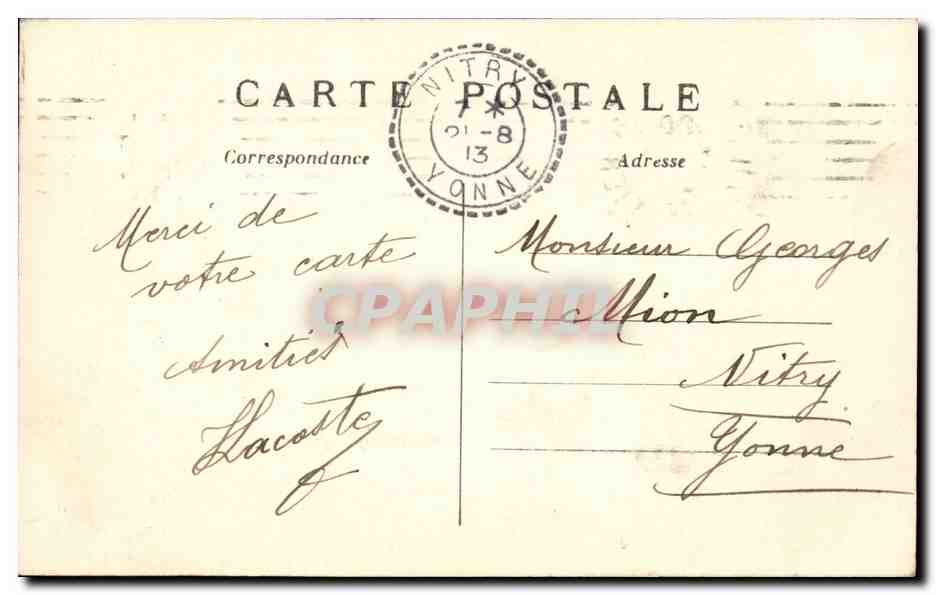 CARTE POSTALE
NITRY
7 *
21-8
13
YONNE
Correspondance
Adresse
Merci de
votre carte
Amitiés
Lacoste
Monsieur Georges
Mion
Nitry
Yonne
CPAPHIL